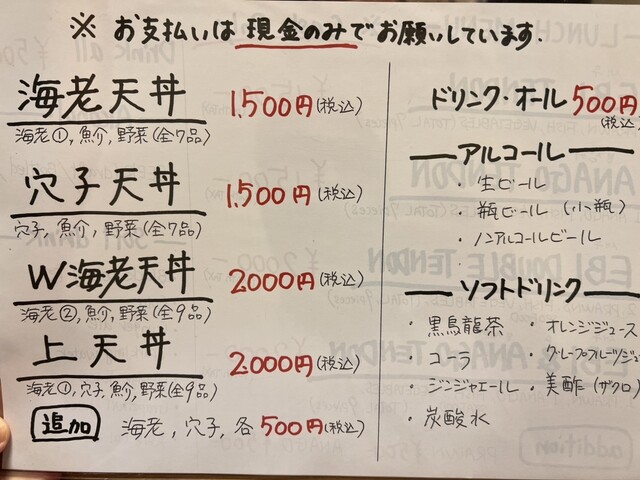 ※ お支払いは 現金のみで お願いしています.
海老天丼 1,500円(税込)
海老①, 魚介, 野菜(全7品)
穴子天丼 1,500円(税込)
穴子, 魚介, 野菜(全7品)
W海老天丼 2000円(税込)
海老②, 魚介, 野菜(全9品)
上天丼 2,000円(税込)
海老①, 穴子, 魚介, 野菜(全9品)
追加 海老, 穴子, 各500円(税込)
ドリンク・オール 500円
(税込)
アルコール
・生ビール
・瓶ビール (小瓶)
・ノンアルコールビール
ソフトドリンク
・黒烏龍茶 ・オレンジジュース
・コーラ ・グレープフルーツジュ
・ジンジャエール ・美酢(ザクロ)
・炭酸水